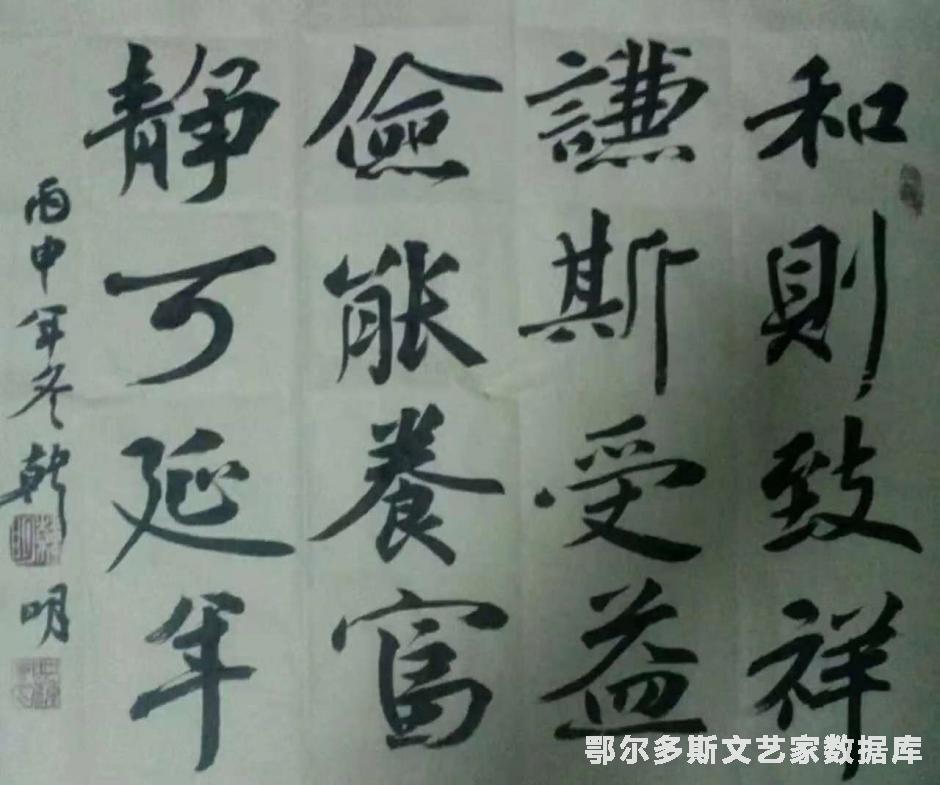 和則致祥
謙斯受益
儉能養富
静可延年
丙申年冬乾明
鄂尔多斯文艺家数据库